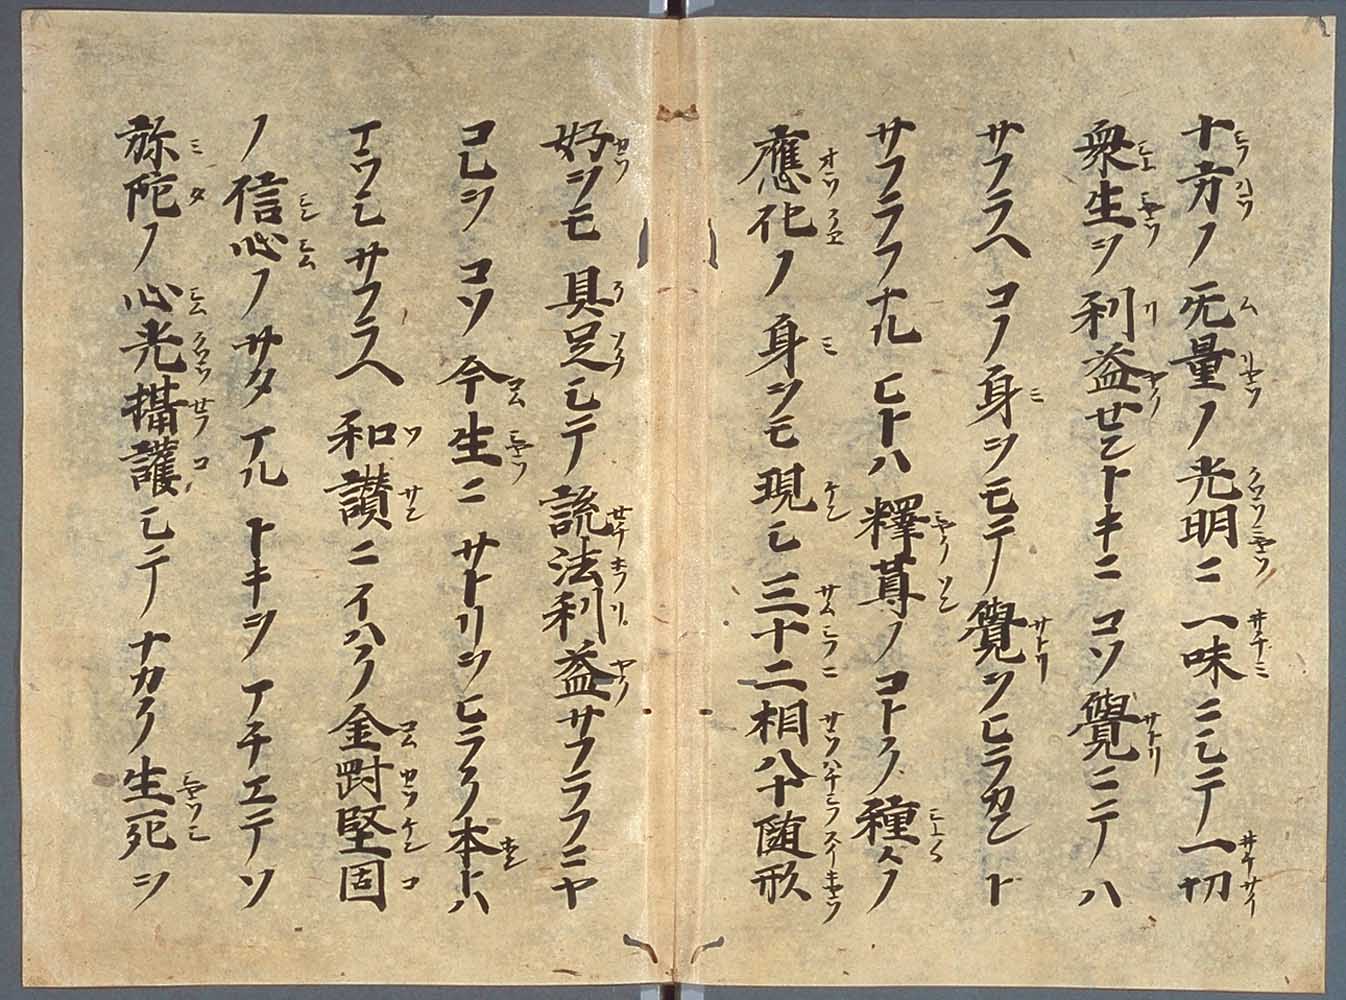 十方ノ无量ノ光明ニ一味ニシテ一切
衆生ヲ利益セントキニコソ覺ニテハ
サフラヘコノ身ヲモテ覺ヲヒラカント
サフラフナルヒトハ釋尊ノコトク種々ノ
應化ノ身ヲモ現シ三十二相八十随形
好ヲモ具足シテ説法利益サフラフニヤ
コレヲコソ今生ニサトリヲヒラク本トハ
マウシサフラヘ和讃ニイハク金剛堅固
ノ信心ノサタマルトキヲマチエテソ
弥陀ノ心光攝護シテナカク生死ヲ